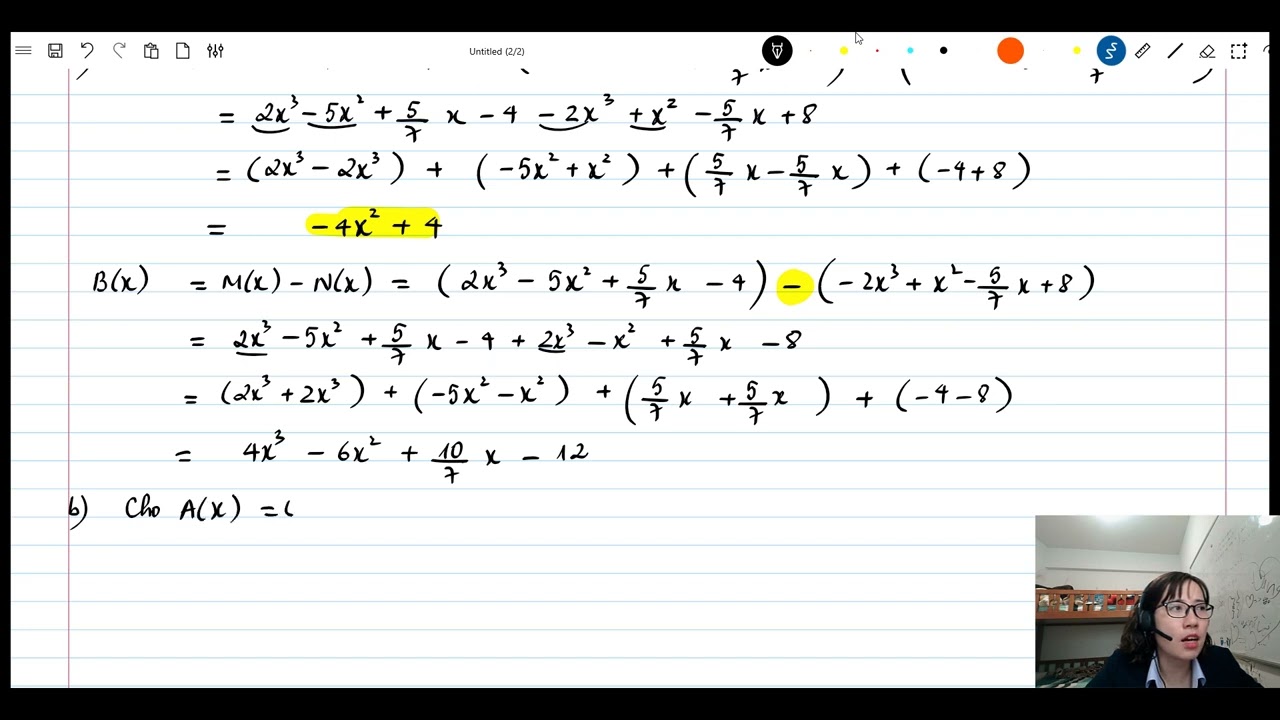 Untitled (2/2)
= 2x³ - 5x² + 5/7 x - 4 - 2x³ + x² - 5/7 x + 8
= (2x³ - 2x³) + (-5x² + x²) + (5/7 x - 5/7 x) + (-4+8)
= -4x² + 4
B(x) = M(x) - N(x) = (2x³ - 5x² + 5/7 x - 4) - (-2x³ + x² - 5/7 x + 8)
= 2x³ - 5x² + 5/7 x - 4 + 2x³ - x² + 5/7 x - 8
= (2x³ + 2x³) + (-5x² - x²) + (5/7 x + 5/7 x) + (-4 - 8)
= 4x³ - 6x² + 10/7 x - 12
b) Cho A(x) =